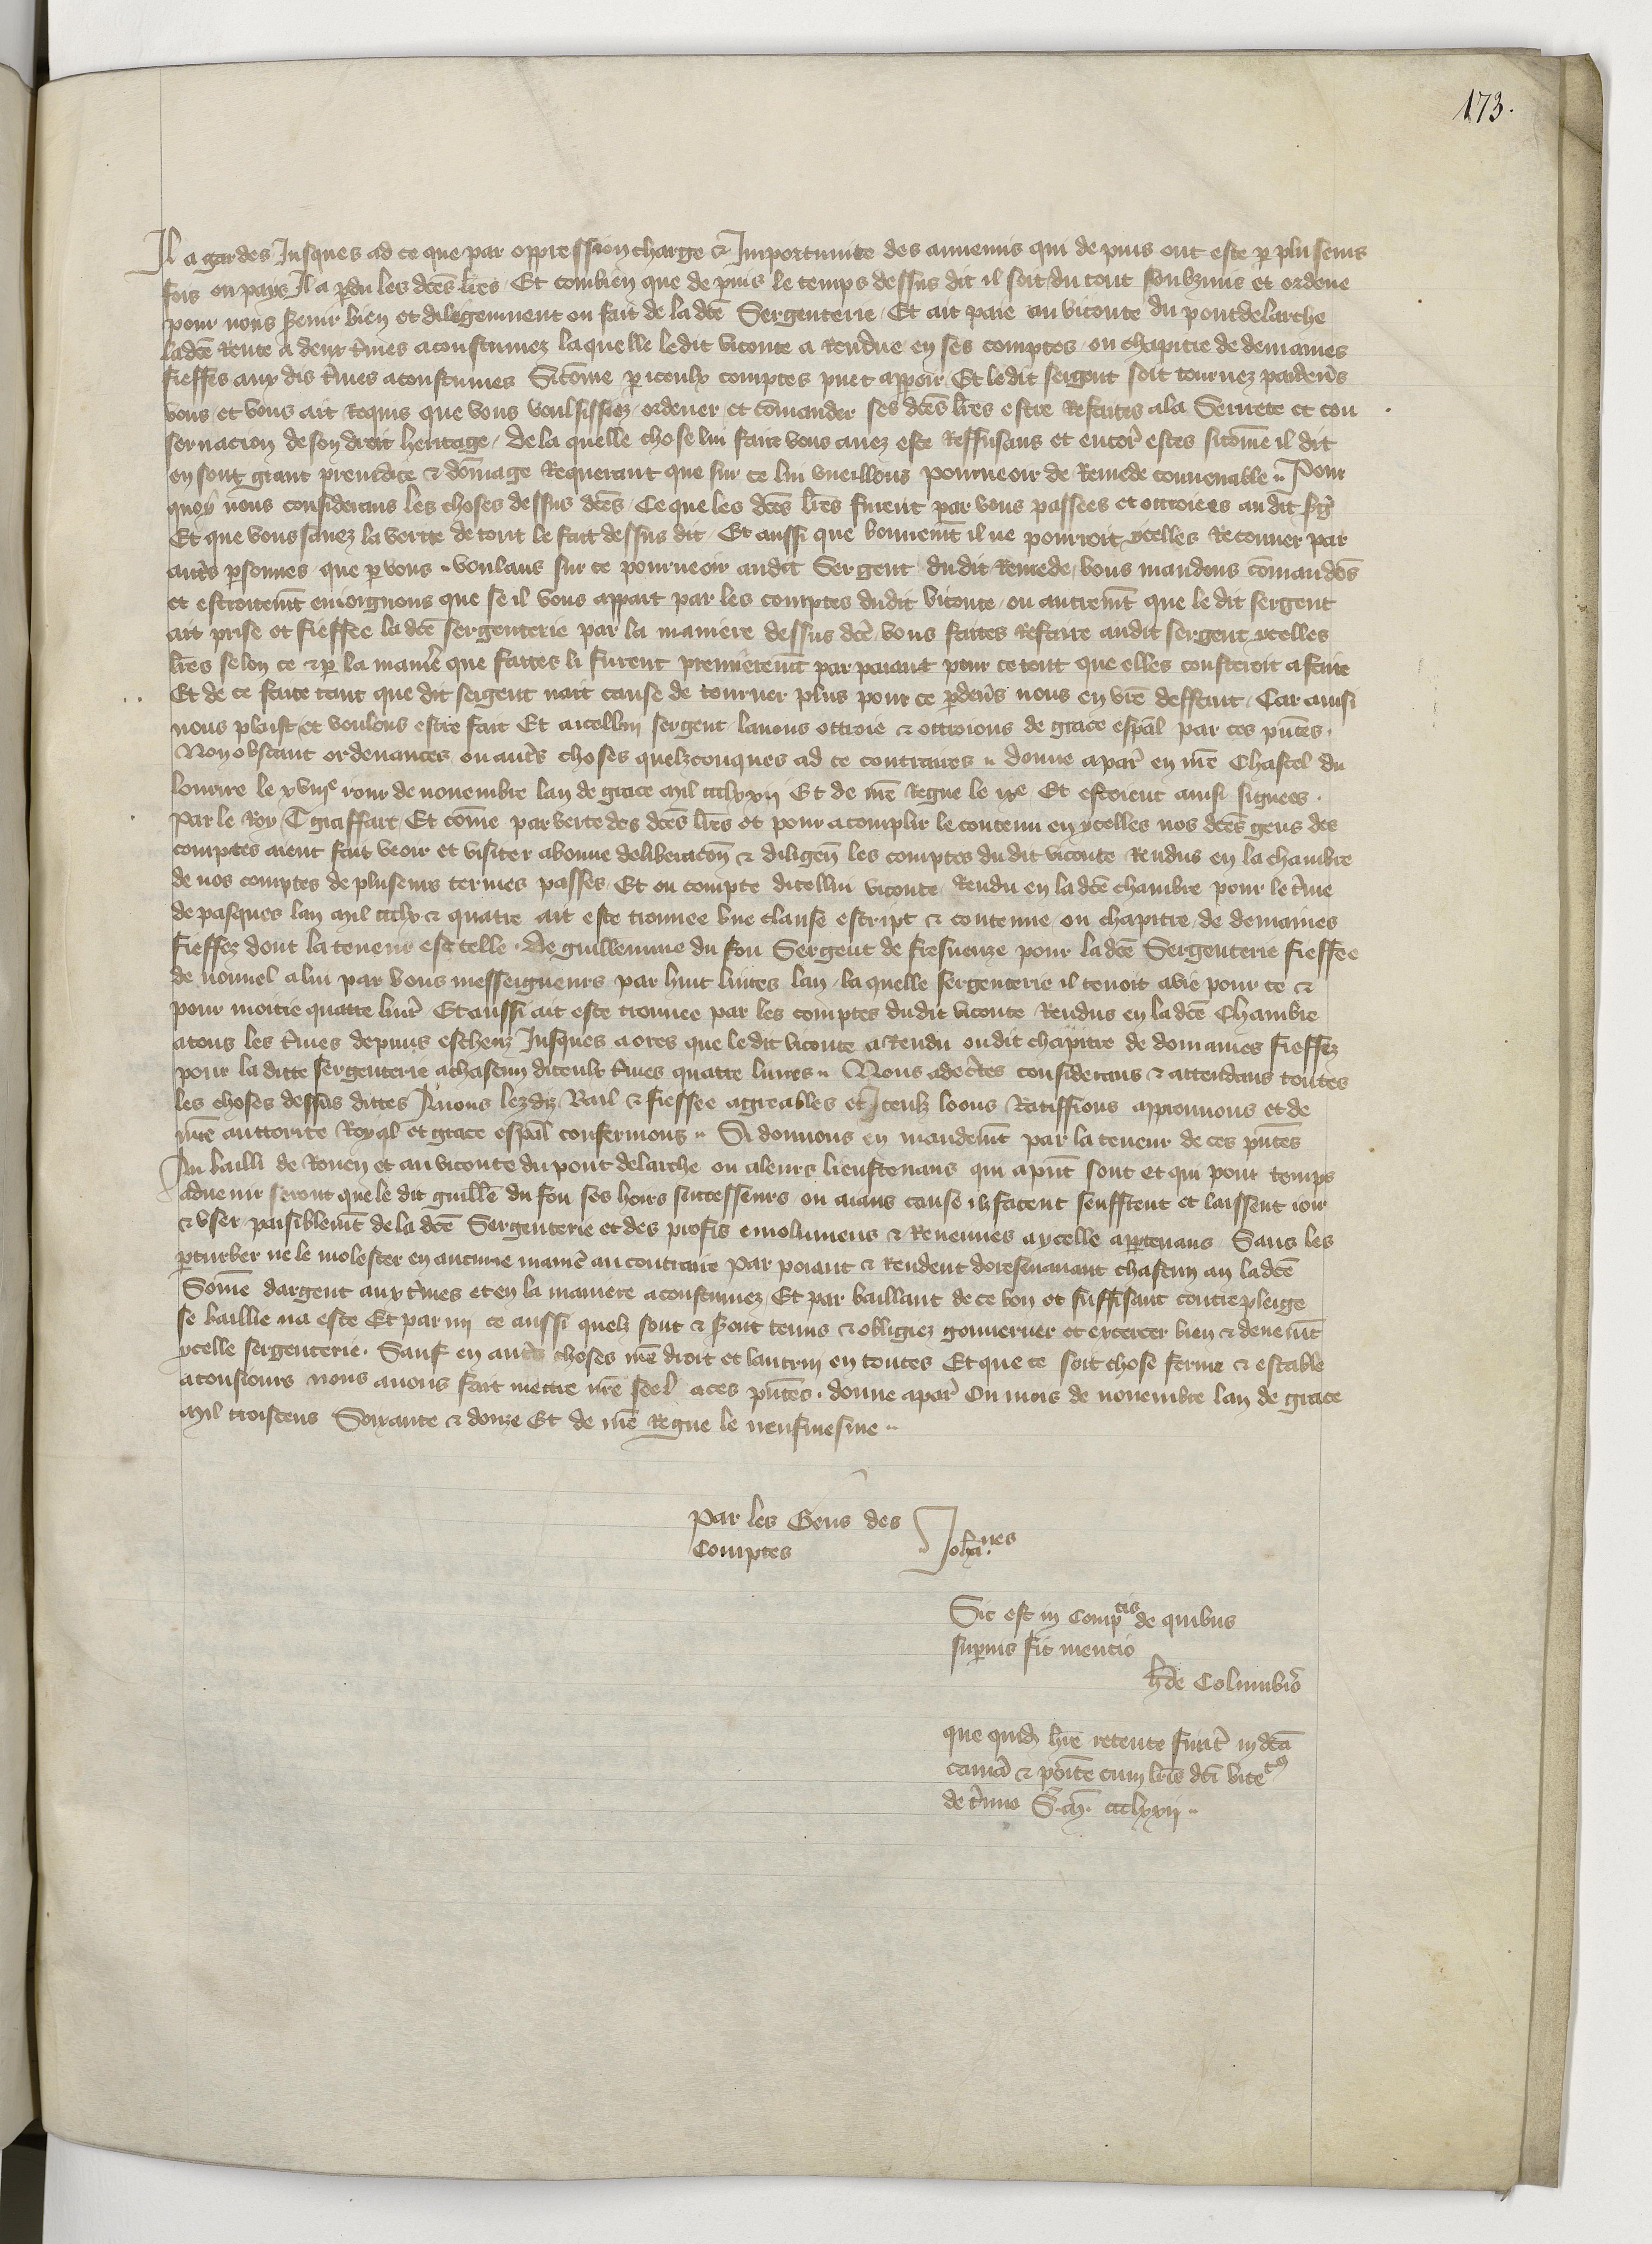 173.
Il a gardes Jusques ad ce que par oppression charge & Importunite des annemis qui de puis ont este p̲ pluseurs
fois ou pays Il a p̲du les dc̄es lr̄es Et combien que de puis le temps dessus dit il soit du tout soubzmis et ordene
pour nous s̲uir bien et diligemment ou fait de la dc̄e Sergenterie Et ait paie au viconte du pontdelarche
ladc̄e Rente a deux t̄mes acoustumez laquelle ledit viconte a Rendue en ses comptes ou chapitre de demaines
fieffés aux dis t̄mes acoustumes Sicōme p̲ iceulx comptes puet apparoir Et ledit sergent soit tournez pardeu̅s
vous et vous ait Requis que vous voulsissiez ordener et cōmander ses dc̄es lr̄es estre Refaites ala Seurete et con
seruacion de son droit heritage De la quelle chose lui faire vous auez este Reffusans et encor̄ estes sicōme il dit
en sont grant preiudice & dōmage Requerant que sur ce lui vueillons pourueoir de Remede conuenable Pour
quoy nous considerans les choses dessus dc̄es Ce que les dc̄es lr̄es furent par vous passees et ottroiees au dit s̄g
Et que vous sauez la verite de tout le fait dessus dit Et aussi que bonnemēt il ne pourroit ycelles Recouurer par
autr̄s p̲sonnes que p̲ vous voulans sur ce pourueoir audit Sergent dudit Remede vous mandons cōmandōs
et estroitemēt enioignons que se il vous appart par les comptes dudit viconte ou autremēt que le dit sergent
ait prise et fieffee la dc̄e sergenterie par la maniere dessus dc̄e vous faites Refaire audit sergent ycelles
lr̄es selon ce & p̲ la manie̅ que faites li furent premieremēt par paiant pour ce tout que elles cousteroit a faire
Et de ce faite tant que dit sergent nait cause de tourner plus pour ce p̲deu̅s nous en vr̄e deffaut Car ainsi
nous plaist et voulons estre fait Et a icellui sergent lauons ottroie & ottroions de grace esp̄al par ces pn̄tes
Non obstant ordenances ou autr̄s choses quelzconques ad ce contraires donne a par̄ en nr̄e Chastel du
louure le xviije iour de nouembre lan de grace mil ccclxxij Et de nr̄e Regne le ixe Et estoient ainsi signees
par le Roy T graffart Et cōme par verte des dc̄es lr̄es et pour acomplir le contenu en ycelles nos dc̄es gens des
comptes aient fait veoir et visiter a bonne deliberacōn & diligen̄ les comptes du dit viconte Rendus en la chambre
de nos comptes de pluseurs termes passes Et ou compte dicellui viconte Rendu en la dc̄e chambre pour le t̄me
de pasques lan mil ccclx & quatre ait este trouuee vne clause escript & contenue ou chapitre de demaines
fieffez dont la teneur est telle De guillemme du fou Sergent de fresuenze pour la dc̄e Sergenterie fieffee
de nouuel a lui par vous messeigneurs par huit liures lan la quelle sergenterie il tenoit a vie pour ce &
pour moitie quatre liur̄ Et aussi ait este trouuee par les comptes dudit viconte Rendus en la dc̄e Chambre
a tous les t̄mes depuis escheuz Jusques a ores que le dit viconte a Rendu ou dit chapitre de domaines fieffez
pour la ditte sergenterie a chascun diceulx t̄mes quatre liures Nous adec̄tes considerans & attendans toutes
les choses dessus dittes Auons lezdiz Bail & fieffee agreables et Iceulx loons Ratiffions approuuons et de
nr̄e auttorite Royal et grace esp̄al confermons Si donnons en mandemēt par la teneur de ces pn̄tes
Au bailli de Rouen et au viconte du pont delarche ou a leurs lieuxtenans qui a pn̄t sont et qui pour temps
aduenir seront que le dit guille̅ du fou ses hoirs successeurs ou aians cause ilz facent seuffrent et laissent ioir
& vser paisiblemēt de la dc̄e Sergenterie et des profis emolumens & Reuenues a ycelle app̲tenans Sans les
p̲turber ne le molester en aucune manie̅ au contraire par poiant & Rendent doresenauant chascun an ladc̄e
Sōme dargent aux t̄mes et en la maniere acoustumez Et par baillant de ce bon et suffisant contrepleige
se baillie na este Et par mi ce aussi quelz sont & s̲ont tenus & obligiez gouuerner et exercer bien & deuemēt
ycelle sergenterie Sauf en autr̄s choses nr̄e droit et lautrui en toutes Et que ce soit chose ferme & estable
a tousiours nous auons fait mettre nr̄e seel a ces pn̄tes donne a par̄ Ou mois de nouembre lan de grace
mil troiscens Soixante & douze Et de nr̄e Regne le neufuiesme
Par les Gens des
Comptes
Johannes
Sic est in comptis de quibus
supius fit mentio
h de Columbr̄
que quid̄ lr̄e retente fuer̄t in dc̄a
cama̅ & po̅ite cum lr̄is dc̄i vicetis
de t̄mino S. M. ccclxxij